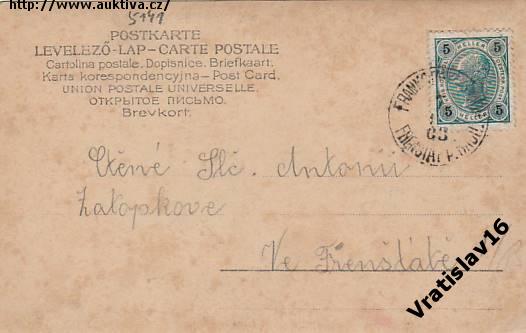 http://www.auktiva.cz/
5141
POSTKARTE
LEVELEZŐ-LAP-CARTE POSTALE
Cartolina postale. Dopisnice. Briefkaart.
Karta korespondencyjna-Post Card.
UNION POSTALE UNIVERSELLE.
ОТКРЫТОЕ ПИСЬМО.
Brevkort.
5 HELLER 5
5 5
03
Ctěné Slč. Antonii
Zátopkove
Ve Frenštátě
Vratislav16